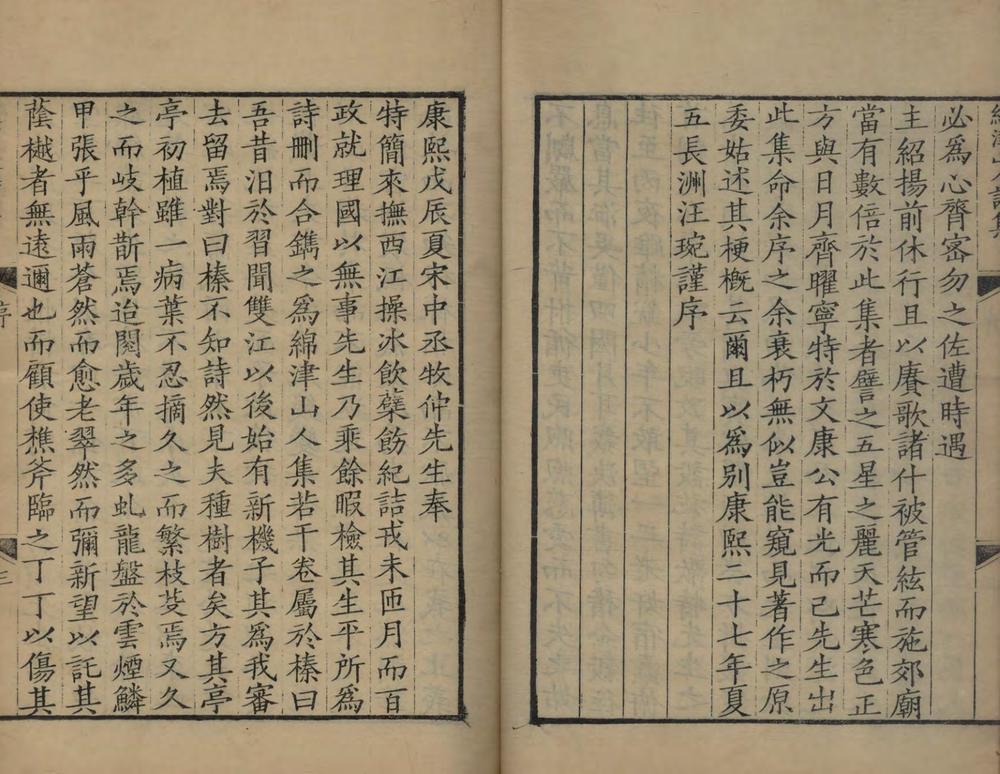 必為心膂密勿之佐遭時遇
主紹揚前休行且以賡歌諸什被管絃而施郊廟
當有數倍於此集者譬之五星之麗天芒寒色正
方與日月齊曜寧特於文康公有光而已先生出
此集命余序之余衰朽無似豈能窺見著作之原
委姑述其梗概云爾且以為別康熙二十七年夏
五長洲汪琬謹序
康熙戊辰夏宋中丞牧仲先生奉
特簡來撫西江操冰飲蘗飭紀詰戎未匝月而百
政就理國以無事先生乃乘餘暇檢其生平所為
詩刪而合鐫之為綿津山人集若干卷屬於榛曰
吾昔汩於習聞雙江以後始有新機子其為我審
去留焉對曰榛不知詩然見夫種樹者矣方其亭
亭初植雖一病葉不忍摘久之而繁枝芟焉又久
之而岐幹斮焉迨閱歲年之多虬龍盤於雲煙鱗
甲張乎風雨蒼然而愈老翠然而彌新望以託其
蔭樾者無遠邇也而顧使樵斧臨之丁丁以傷其
序
三